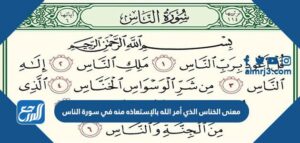 سُورَةُ النَّاسِ
بِسْمِ اللَّهِ الرَّحْمَٰنِ الرَّحِيمِ
قُلْ أَعُوذُ بِرَبِّ النَّاسِ ١ مَلِكِ النَّاسِ ٢ إِلَٰهِ
النَّاسِ ٣ مِن شَرِّ الْوَسْوَاسِ الْخَنَّاسِ ٤ الَّذِي
معنى الخناس الذي أمر الله بالإستعاذه منه في سورة الناس
مِنَ الْجِنَّةِ وَالنَّاسِ ٦
المرجع
almrj3.com